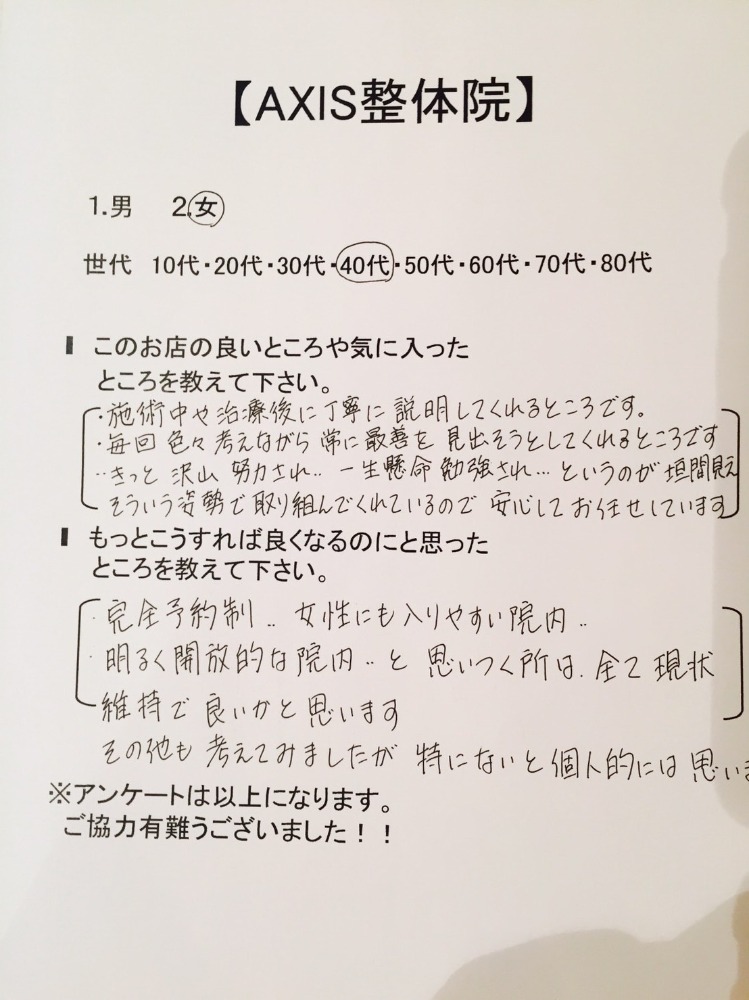 【AXIS整体院】
1.男 2.女
世代 10代・20代・30代・40代・50代・60代・70代・80代
このお店の良いところや気に入った
ところを教えて下さい。
・施術中や治療後に丁寧に説明してくれるところです。
・毎回色々考えながら常に最善を見出そうとしてくれるところです
‥きっと沢山努力され‥一生懸命勉強され…というのが垣間見え
そういう姿勢で取り組んでくれているので安心してお任せしています
もっとこうすれば良くなるのにと思った
ところを教えて下さい。
・完全予約制‥女性にも入りやすい院内‥
・明るく開放的な院内‥と思いつく所は、全て現状
維持で良いかと思います
その他も考えてみましたが特にないと個人的には思いま
※アンケートは以上になります。
ご協力有難うございました！！